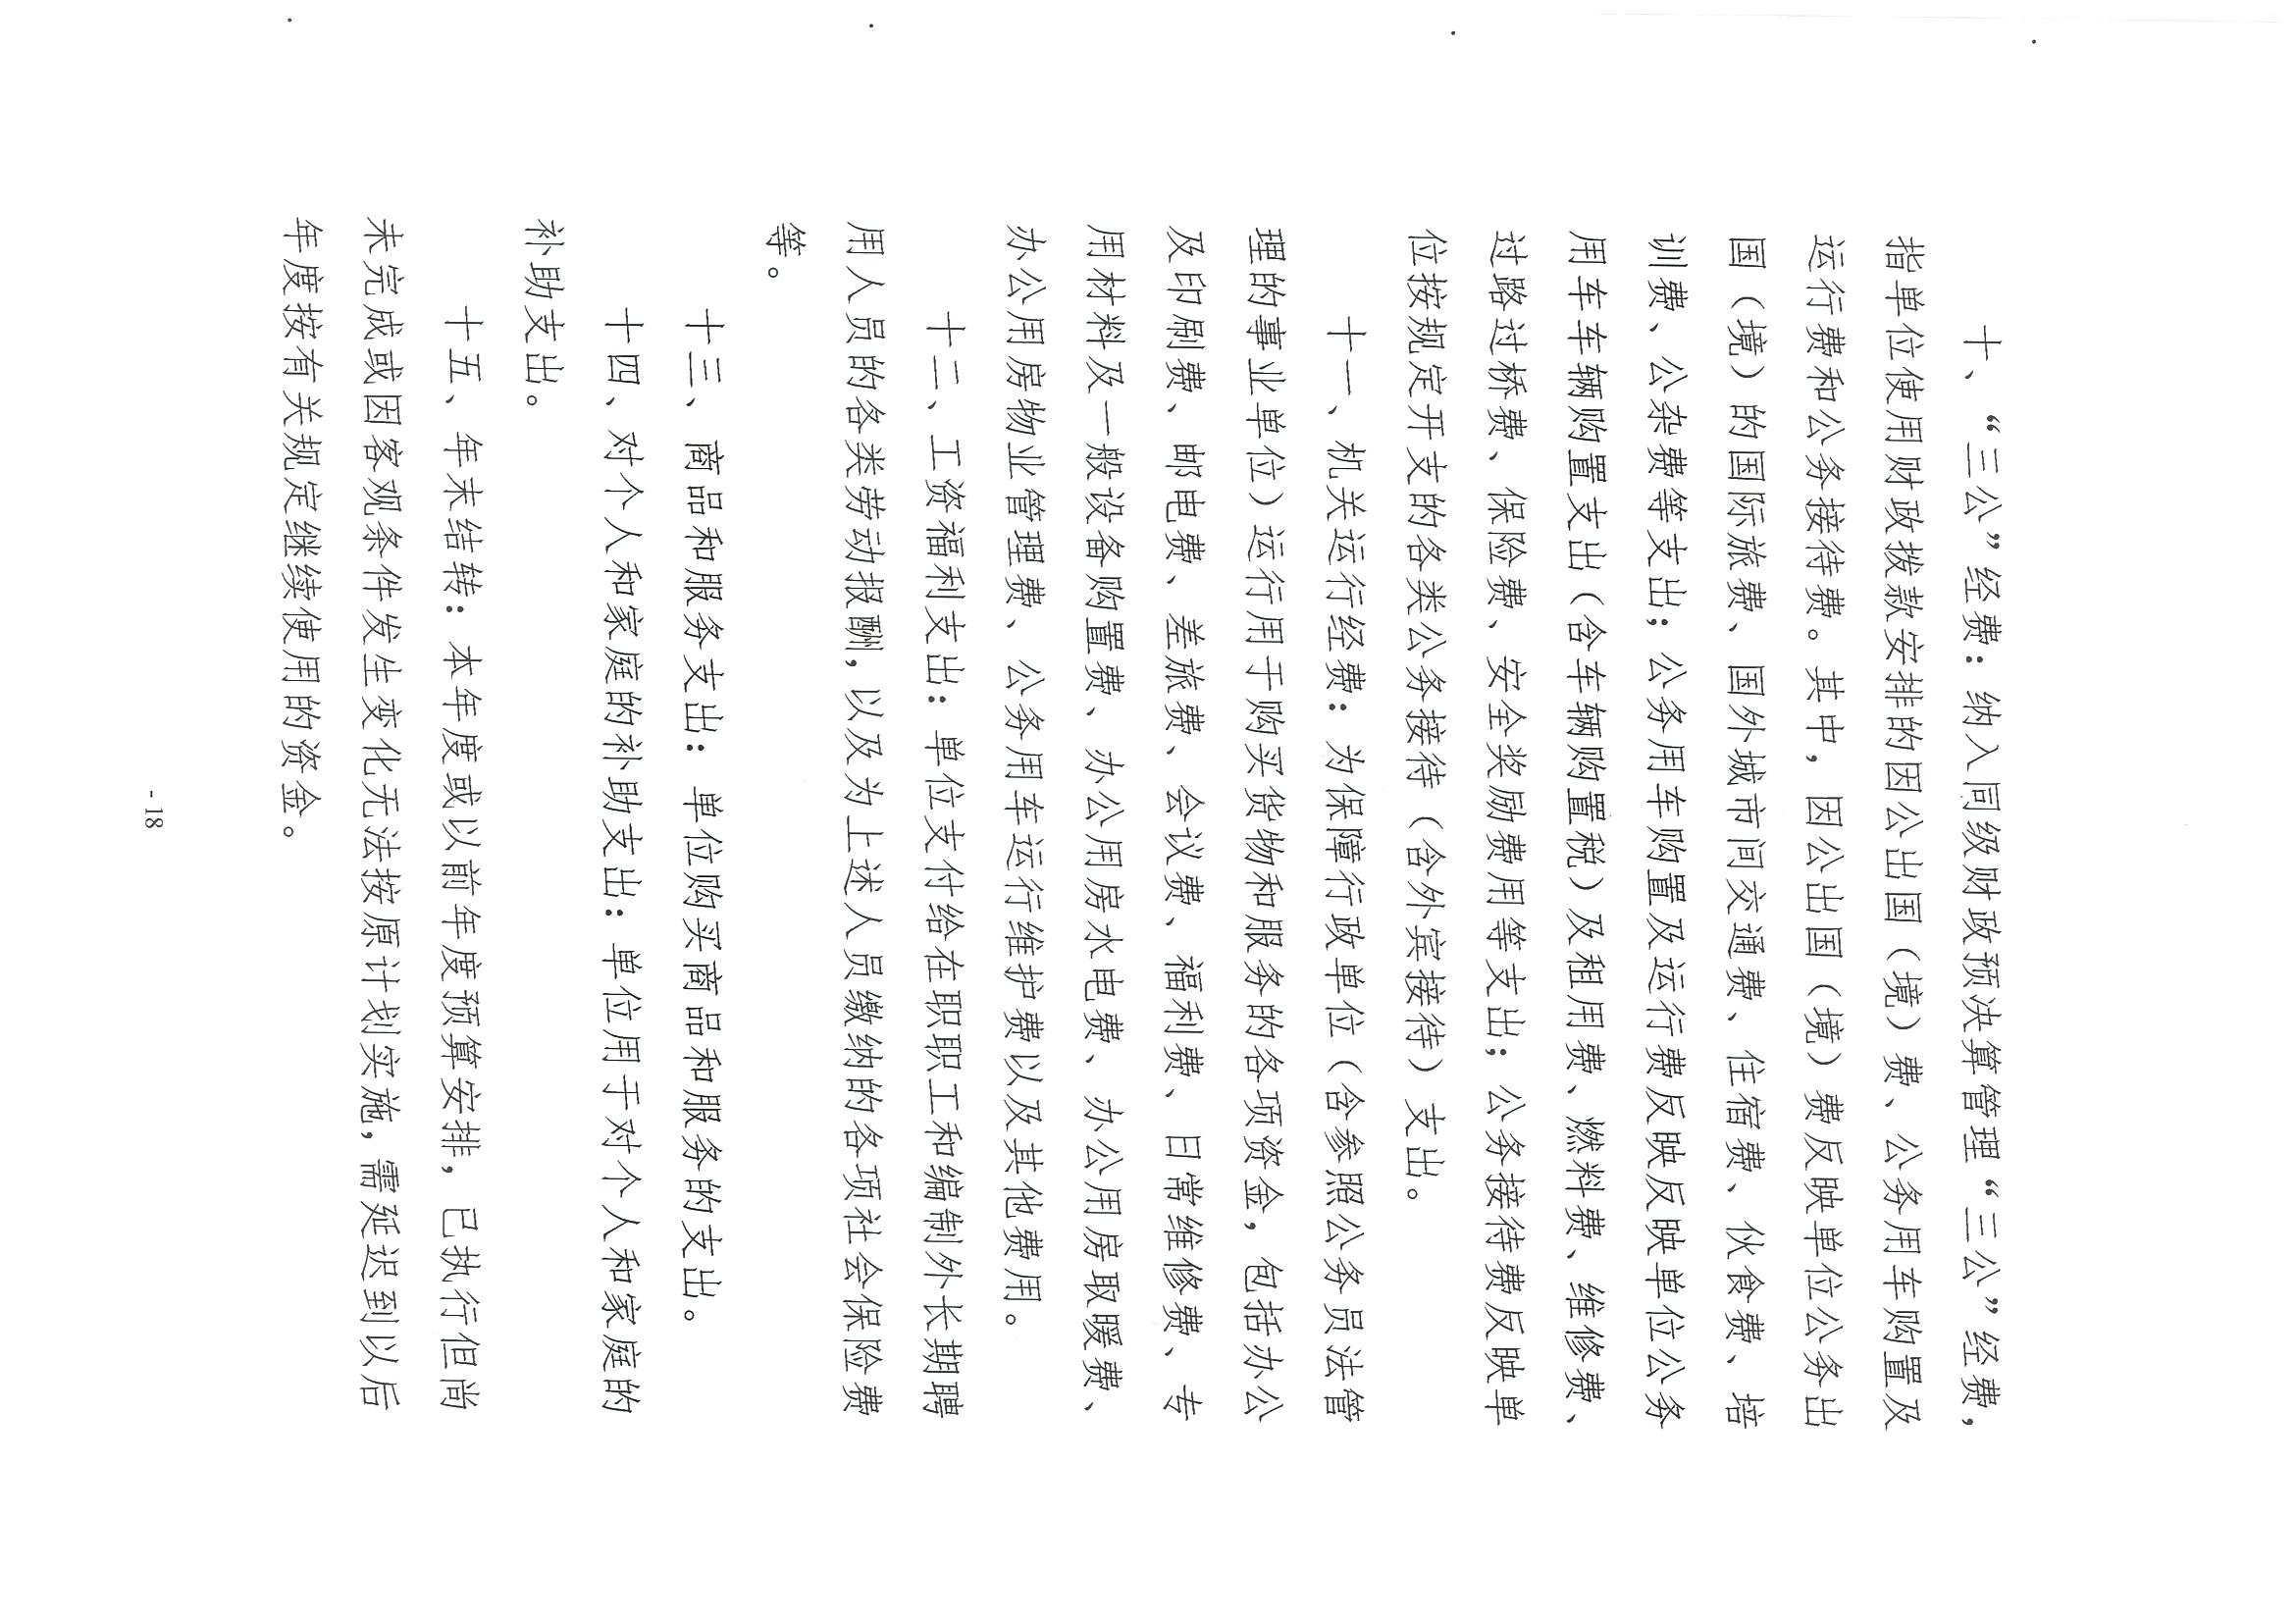 十、“三公”经费：纳入同级财政预决算管理“三公”经费，
指单位使用财政拨款安排的因公出国（境）费、公务用车购置及
运行费和公务接待费。其中，因公出国（境）费反映单位公务出
国（境）的国际旅费、国外城市间交通费、住宿费、伙食费、培
训费、公杂费等支出；公务用车购置及运行费反映反映单位公务
用车车辆购置支出（含车辆购置税）及租用费、燃料费、维修费、
过路过桥费、保险费、安全奖励费用等支出；公务接待费反映单
位按规定开支的各类公务接待（含外宾接待）支出。
十一、机关运行经费：为保障行政单位（含参照公务员法管
理的事业单位）运行用于购买货物和服务的各项资金，包括办公
及印刷费、邮电费、差旅费、会议费、福利费、日常维修费、专
用材料及一般设备购置费、办公用房水电费、办公用房取暖费、
办公用房物业管理费、公务用车运行维护费以及其他费用。
十二、工资福利支出：单位支付给在职职工和编制外长期聘
用人员的各类劳动报酬，以及为上述人员缴纳的各项社会保险费
等。
十三、商品和服务支出：单位购买商品和服务的支出。
十四、对个人和家庭的补助支出：单位用于对个人和家庭的
补助支出。
十五、年末结转：本年度或以前年度预算安排，已执行但尚
未完成或因客观条件发生变化无法按原计划实施，需延迟到以后
年度按有关规定继续使用的资金。
- 18